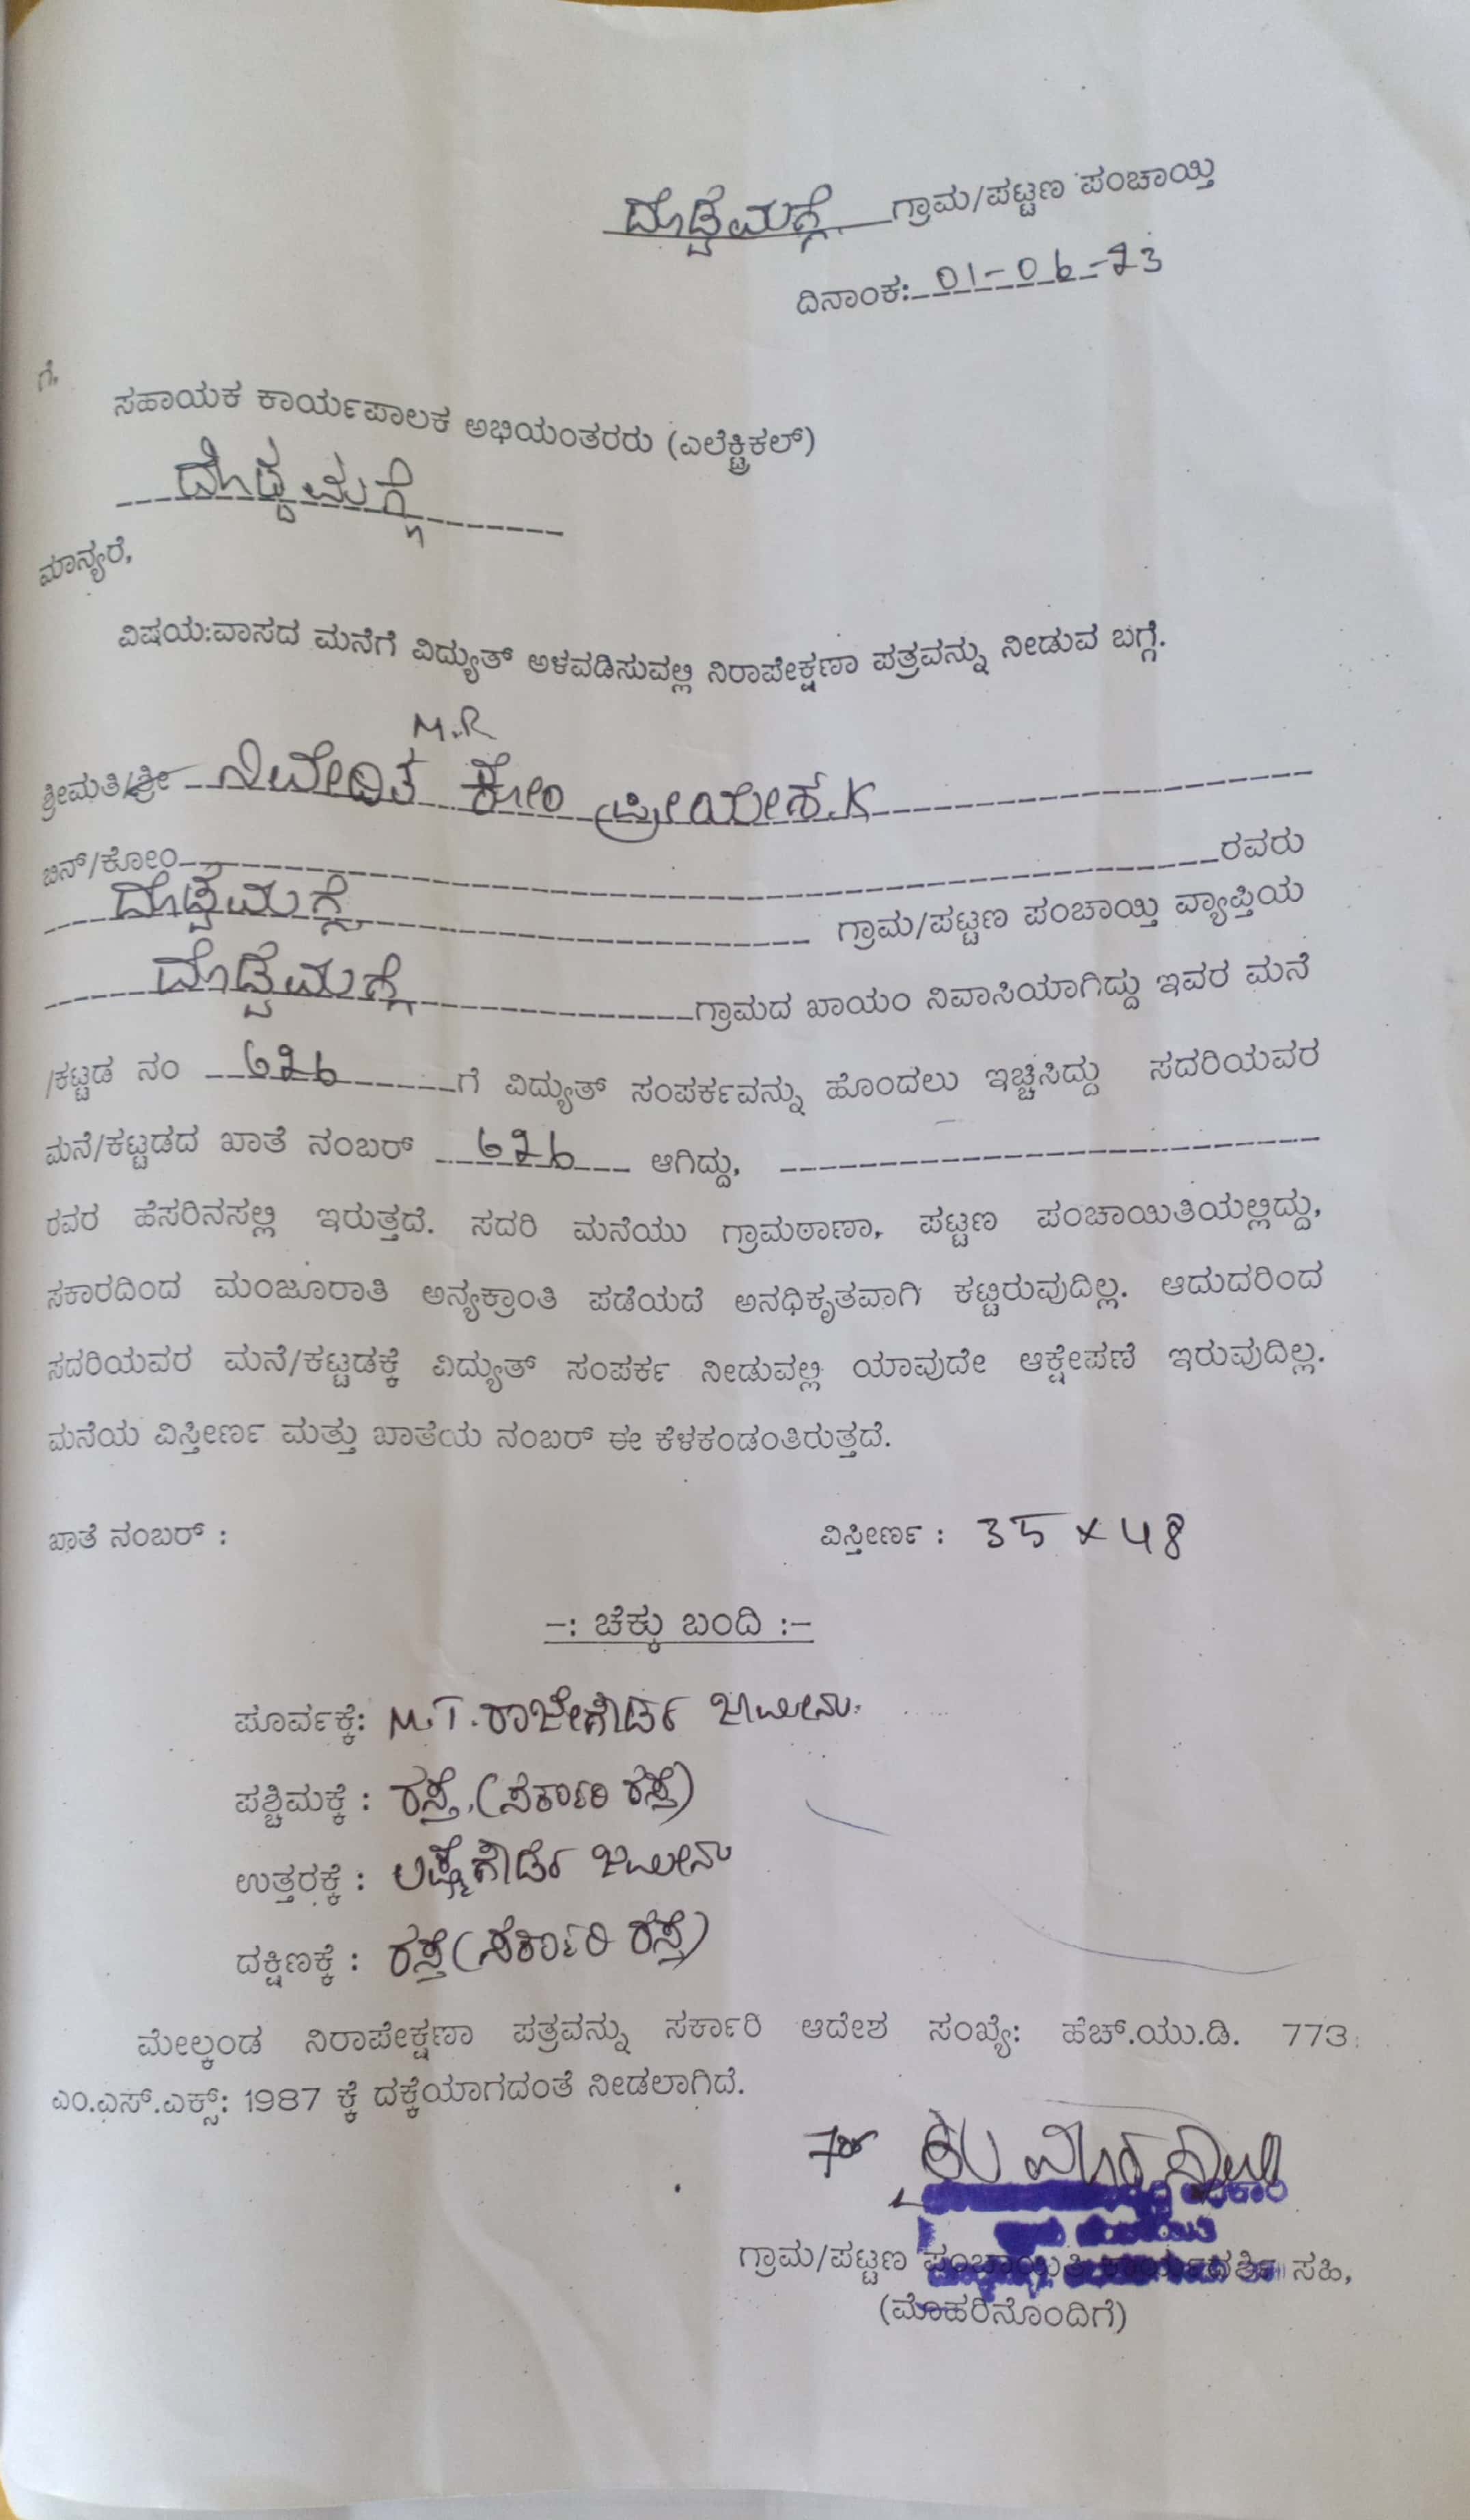 ದೊಡ್ಡಮಗ್ಗೆ ಗ್ರಾಮ/ಪಟ್ಟಣ ಪಂಚಾಯ್ತಿ
ದಿನಾಂಕ: 01-06-23
ಗೆ,
ಸಹಾಯಕ ಕಾರ್ಯಪಾಲಕ ಅಭಿಯಂತರರು (ಎಲೆಕ್ಟ್ರಿಕಲ್)
ದೊಡ್ಡಮಗ್ಗೆ
ಮಾನ್ಯರೆ,
ವಿಷಯ:ವಾಸದ ಮನೆಗೆ ವಿದ್ಯುತ್ ಅಳವಡಿಸುವಲ್ಲಿ ನಿರಾಪೇಕ್ಷಣಾ ಪತ್ರವನ್ನು ನೀಡುವ ಬಗ್ಗೆ.
M.R
ಶ್ರೀಮತಿ/ಶ್ರೀ ನಿವೇದಿತ ಕೋಂ ಪ್ರೀಯೇಶ.K
ಬಿನ್/ಕೋಂ ರವರು
ದೊಡ್ಡಮಗ್ಗೆ ಗ್ರಾಮ/ಪಟ್ಟಣ ಪಂಚಾಯ್ತಿ ವ್ಯಾಪ್ತಿಯ
ದೊಡ್ಡಮಗ್ಗೆ ಗ್ರಾಮದ ಖಾಯಂ ನಿವಾಸಿಯಾಗಿದ್ದು ಇವರ ಮನೆ
/ಕಟ್ಟಡ ನಂ 626 ಗೆ ವಿದ್ಯುತ್ ಸಂಪರ್ಕವನ್ನು ಹೊಂದಲು ಇಚ್ಚಿಸಿದ್ದು ಸದರಿಯವರ
ಮನೆ/ಕಟ್ಟಡದ ಖಾತೆ ನಂಬರ್ 626 ಆಗಿದ್ದು,
ರವರ ಹೆಸರಿನಸಲ್ಲಿ ಇರುತ್ತದೆ. ಸದರಿ ಮನೆಯು ಗ್ರಾಮಠಾಣಾ, ಪಟ್ಟಣ ಪಂಚಾಯಿತಿಯಲ್ಲಿದ್ದು,
ಸಕಾರದಿಂದ ಮಂಜೂರಾತಿ ಅನ್ಯಕ್ರಾಂತಿ ಪಡೆಯದೆ ಅನಧಿಕೃತವಾಗಿ ಕಟ್ಟಿರುವುದಿಲ್ಲ. ಆದುದರಿಂದ
ಸದರಿಯವರ ಮನೆ/ಕಟ್ಟಡಕ್ಕೆ ವಿದ್ಯುತ್ ಸಂಪರ್ಕ ನೀಡುವಲ್ಲಿ ಯಾವುದೇ ಆಕ್ಷೇಪಣೆ ಇರುವುದಿಲ್ಲ.
ಮನೆಯ ವಿಸ್ತೀರ್ಣ ಮತ್ತು ಖಾತೆಯ ನಂಬರ್ ಈ ಕೆಳಕಂಡಂತಿರುತ್ತದೆ.
ಖಾತೆ ನಂಬರ್ : ವಿಸ್ತೀರ್ಣ : 35 x 48
-: ಚೆಕ್ಕು ಬಂದಿ :-
ಪೂರ್ವಕ್ಕೆ: M.T.ರಾಜೇಗೌಡರ ಜಮೀನು.
ಪಶ್ಚಿಮಕ್ಕೆ : ರಸ್ತೆ, (ಸರ್ಕಾರಿ ರಸ್ತೆ)
ಉತ್ತರಕ್ಕೆ : ಜಮೀನು
ದಕ್ಷಿಣಕ್ಕೆ : ರಸ್ತೆ (ಸರ್ಕಾರಿ ರಸ್ತೆ)
ಮೇಲ್ಕಂಡ ನಿರಾಪೇಕ್ಷಣಾ ಪತ್ರವನ್ನು ಸರ್ಕಾರಿ ಆದೇಶ ಸಂಖ್ಯೆ: ಹೆಚ್.ಯು.ಡಿ. 773:
ಎಂ.ಎಸ್.ಎಕ್ಸ್: 1987 ಕ್ಕೆ ದಕ್ಕೆಯಾಗದಂತೆ ನೀಡಲಾಗಿದೆ.
ಗ್ರಾಮ/ಪಟ್ಟಣ ಪಂಚಾಯಿತಿ ಕಾರ್ಯದರ್ಶಿ ಸಹಿ,
(ಮೊಹರಿನೊಂದಿಗೆ)